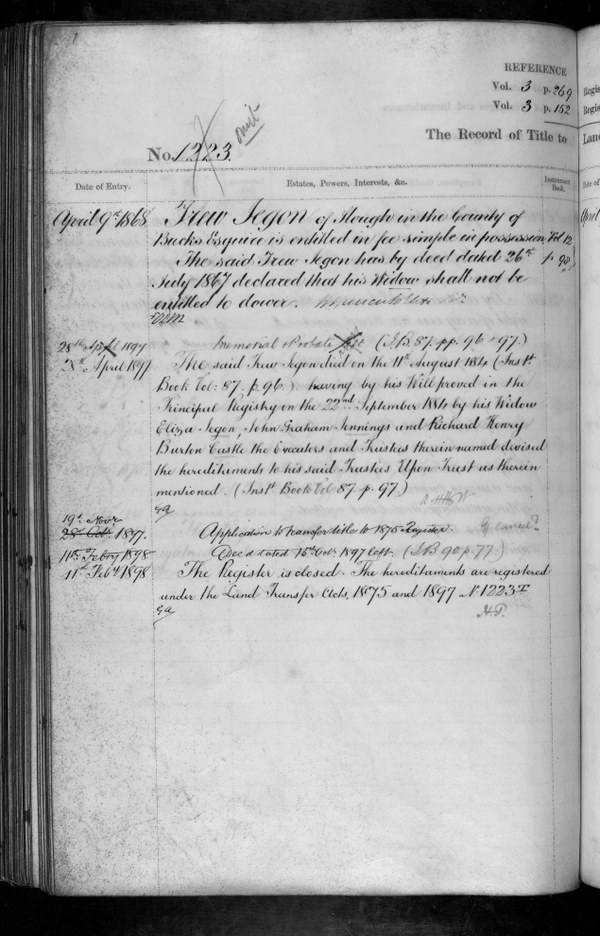 REFERENCE
Vol. 3 p. 269
Vol. 3 p. 152
The Record of Title to
No. 1223.
omit
Date of Entry.
Estates, Powers, Interests, &c.
Instrument Book.
April 9th 1868
Trew Jegon of Slough in the County of
Bucks Esquire is entitled in fee simple in possession
Vol 12
The said Trew Jegon has by deed dated 26th
p. 98
July 1867 declared that his Widow shall not be
entitled to dower.
28th April 1897
Memorial & Probate (I.B. 87. pp. 96 & 97.)
28th April 1897
The said Trew Jegon died on the 11th August 1884 (Inst
Book Vol: 87. p. 96.) having by his Will proved in the
Principal Registry on the 22nd September 1884 by his Widow
Eliza Jegon, John Graham Jennings and Richard Henry
Burton Castle the Executors and Trustees therein named devised
the hereditaments to his said Trustees Upon Trust as therein
mentioned. (Inst Book Vol 87. p. 97.)
19th Novr
28 Oct. 1897.
Application to transfer title to 1875 Register.
11th Febry 1898
Deed dated 15th Oct. 1897 left. (I.B. 90 p. 77.)
11th Feby 1898
The Register is closed. The hereditaments are registered
under the Land Transfer Acts, 1875 and 1897 No 1223T
H.P.